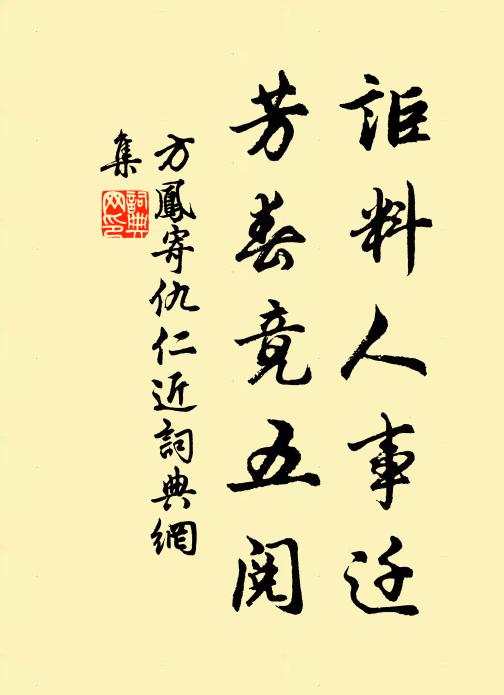 詎料人事迁
芳春竟五閱
方鳳寄仇仁近詞典網
集
詞典
网印